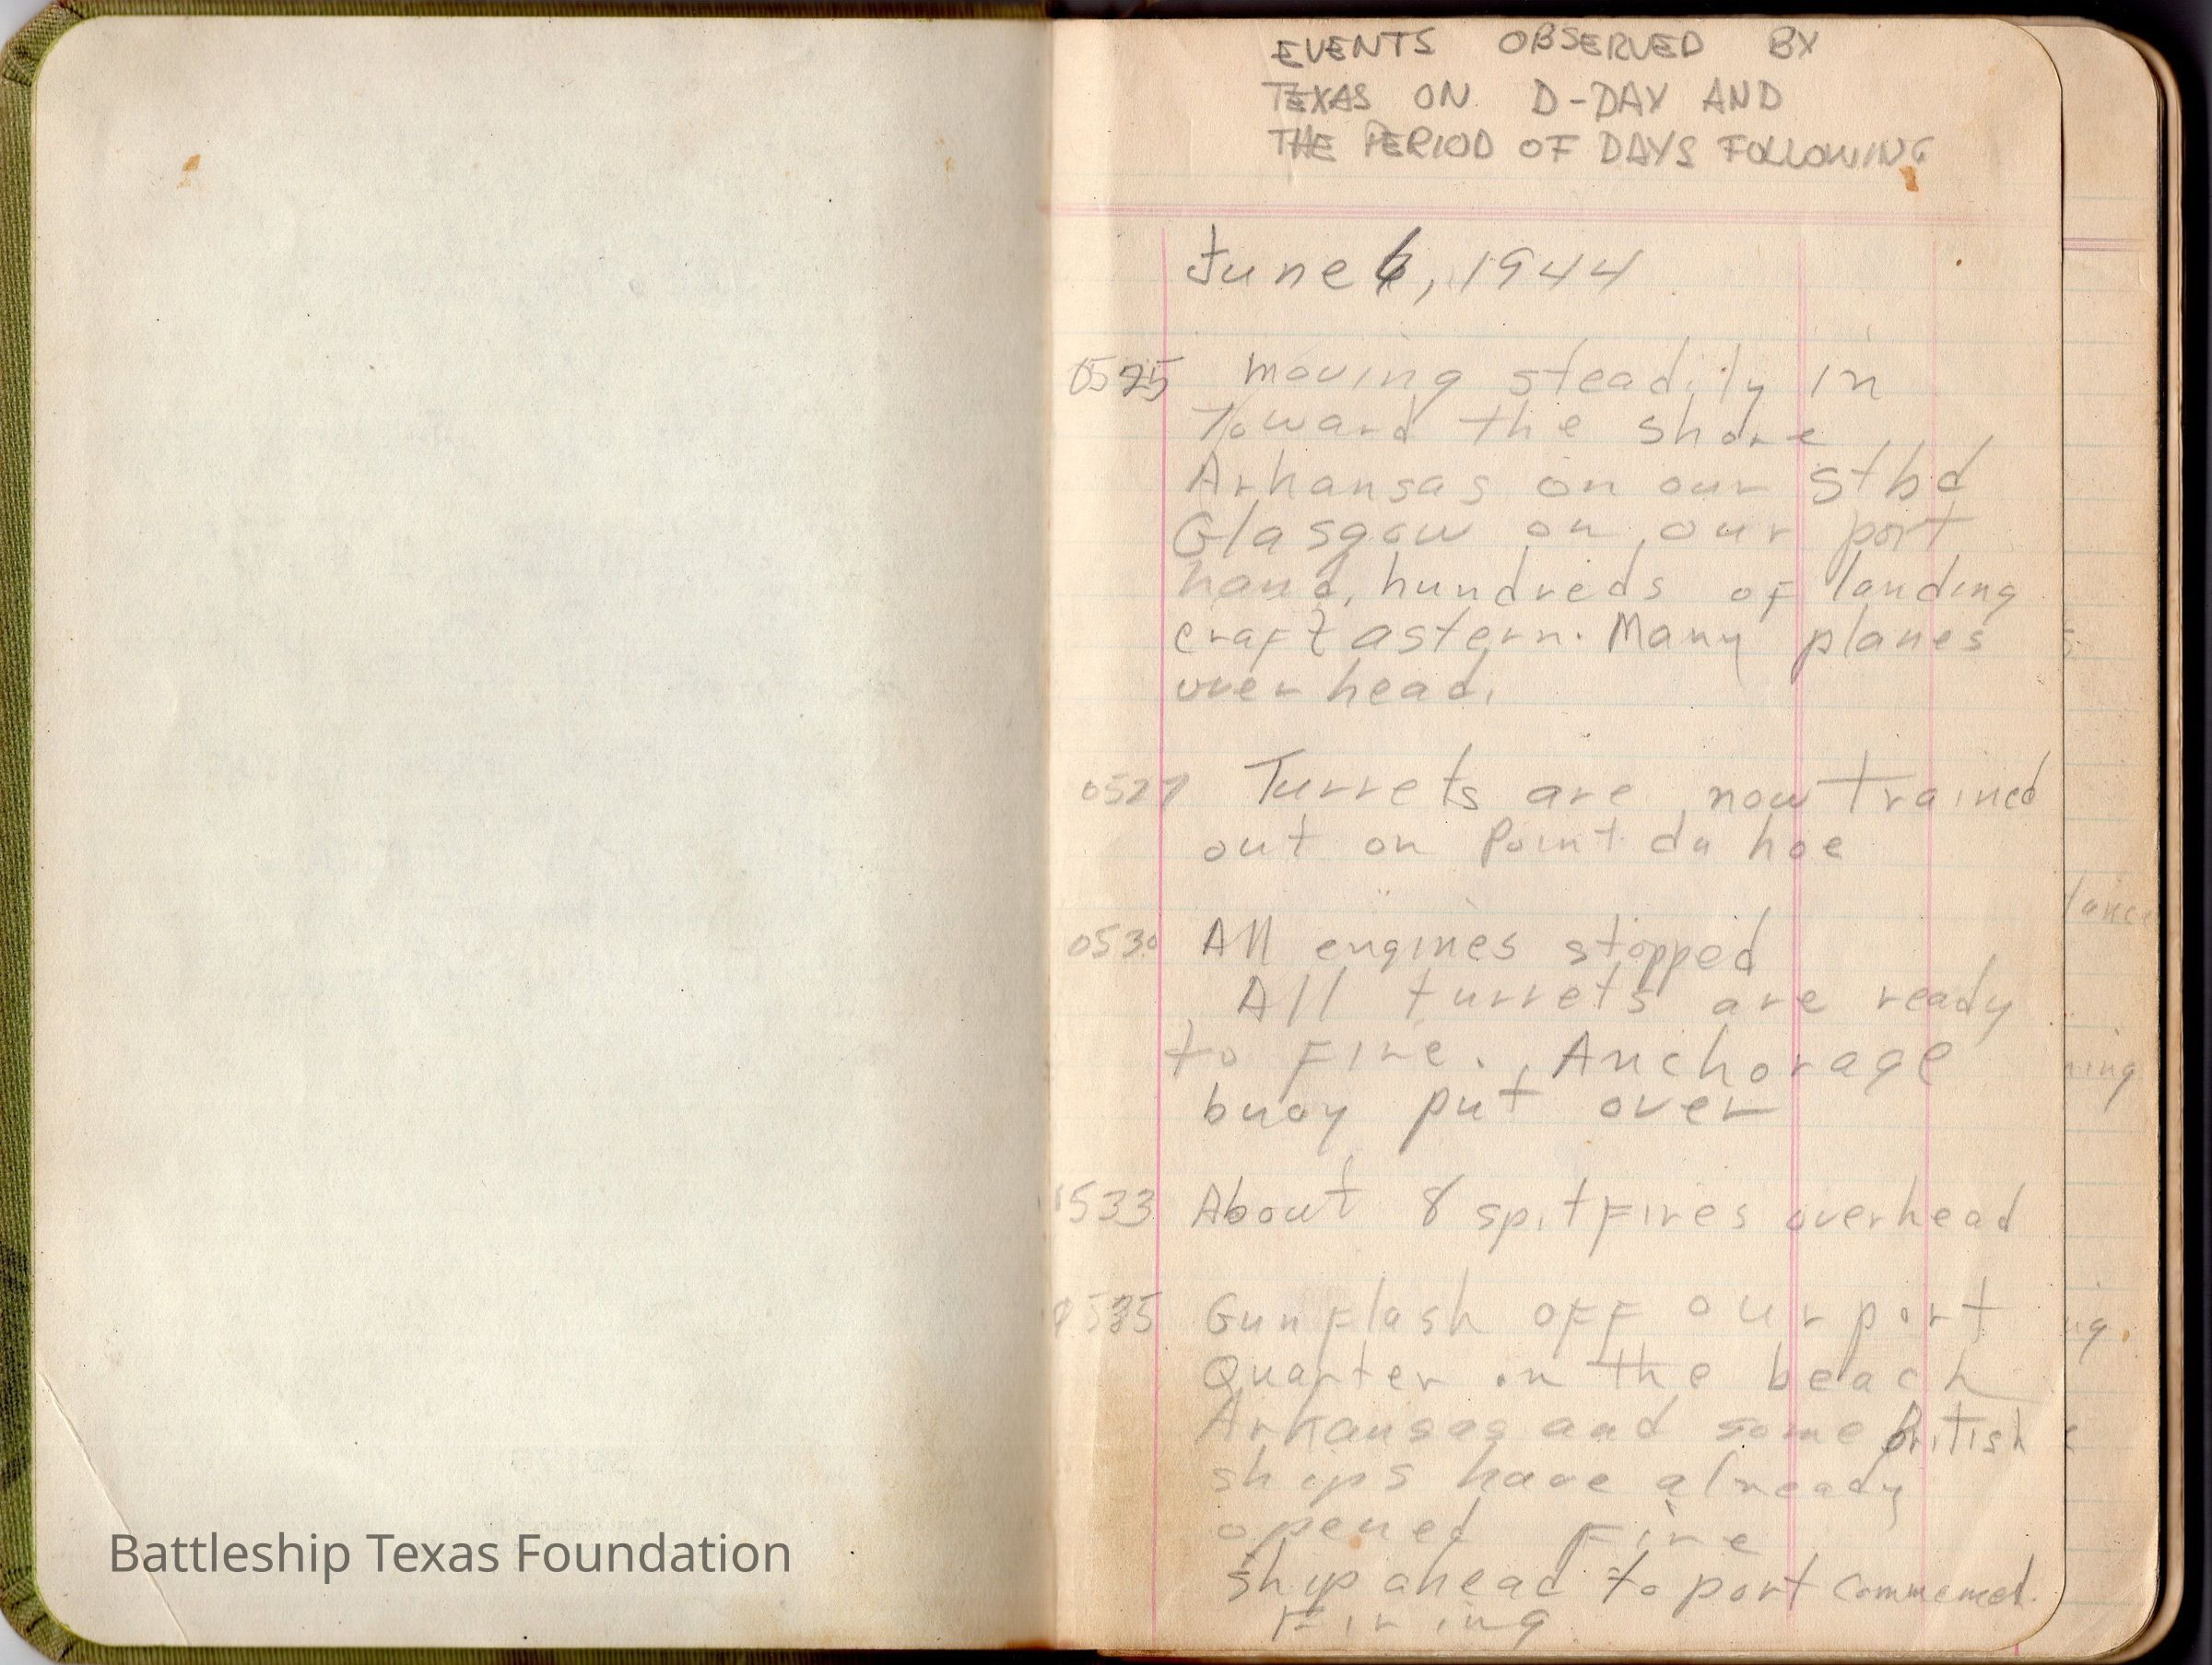 EVENTS OBSERVED BY
TEXAS ON D-DAY AND
THE PERIOD OF DAYS FOLLOWING
June 6, 1944
0525 moving steadily in
Toward the shore
Arkansas on our stbd
Glasgow on our port
hand, hundreds of landing
craft astern. Many planes
overhead.
0527 Turrets are now trained
out on Point du hoe
0530 All engines stopped
All turrets are ready
to fire. Anchorage
buoy put over
0533 About 8 spitfires overhead
0535 Gun flash off our port
Quarter on the beach
Arkansas and some British
ships have already
opened fire
ship ahead to port commenced
Firing
Battleship Texas Foundation